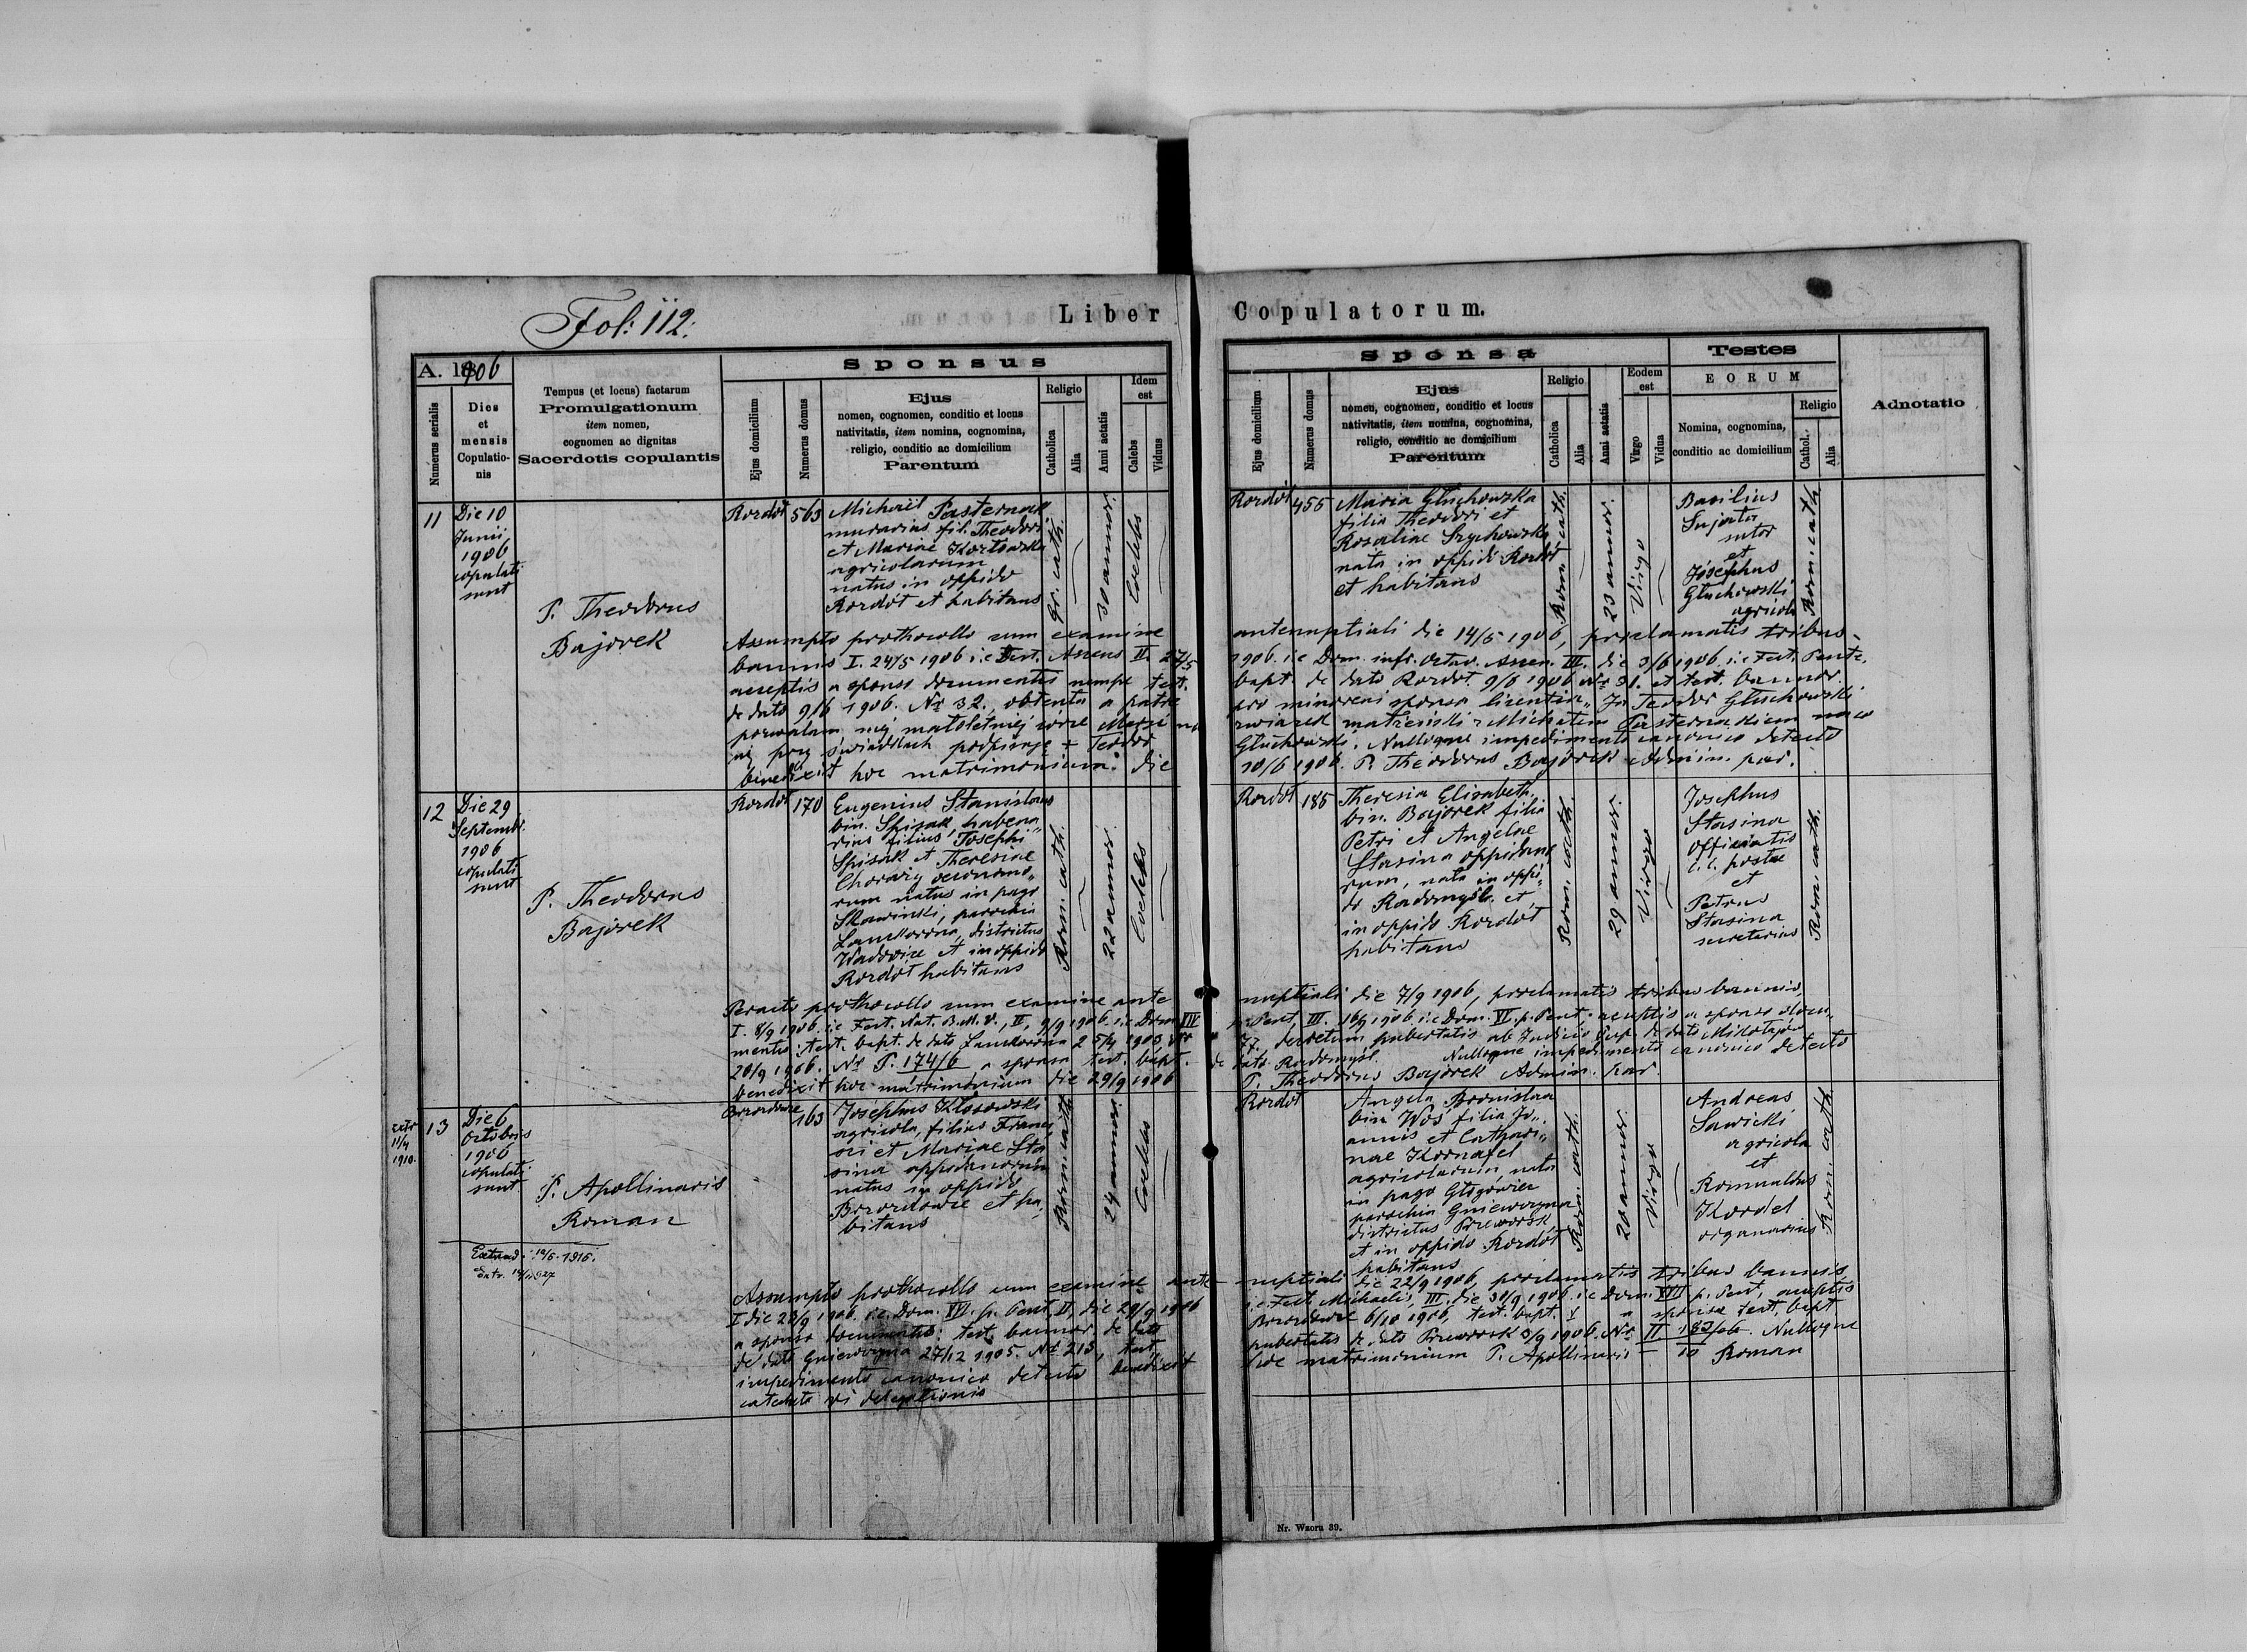 Fol: 112.
Liber Copulatorum.
A. 1906
Numerus serialis
Dies
et
mensis
Copulatio-
nis
Tempus (et locus) factarum
Promulgationum
item nomen,
cognomen ac dignitas
Sacerdotis copulantis
Sponsus
Ejus domicilium
Numerus domus
Ejus
nomen, cognomen, conditio et locus
nativitatis, item nomina, cognomina,
religio, conditio ac domicilium
Parentum
Religio
Catholica
Alia
Anni aetatis
Idem
est
Caelebs
Viduus
Sponsa
Ejus domicilium
Numerus domus
Ejus
nomen, cognomen, conditio et locus
nativitatis, item nomina, cognomina,
religio, conditio ac domicilium
Parentum
Religio
Catholica
Alia
Anni aetatis
Eodem
est
Virgo
Vidua
Testes
EORUM
Nomina, cognomina,
conditio ac domicilium
Religio
Cathol.
Alia
Adnotatio
11
Die 10
Junii
1906
copulati
sunt
P. Theodorus
Bajorek
Rozdół
563
Michaël Pasternak
murarius fil. Theodori
et Mariae
agricolarum
natus in oppido
Rozdół et habitans
gr. cath.
30 annor.
Coelebs
Rozdół
455
Maria Głuchowska
filia Theodori et
Rosaliae
nata in oppido Rozdół
et habitans
Rom. cath.
23 annor.
Virgo
Basilius
sutor
et
Josephus
Głuchowski
agricola
Rom. cath.
Assumpto prothocollo cum examine antenuptiali die 14/5 1906, proclamatis tribus
bannis I. 24/5 1906 i.e Fest. Ascens II. 27/5 1906 i.e Dom. infr. Octav. Ascen. III. die 3/6 1906 i.e Fest. Pente.
acceptis a sponso documentis nempe test. bapt. de dato Rozdoł. 9/6 1906 No 31. et test. bannor.
de dato 9/6 1906. No 32., obtenta a patre pro minoreni sponsa licentia „Ja Teodor Głuchowski
pozwalam mej małoletniej córce Maryi na związek małżeński z Michałem Pasternakiem na co
się przy świadkach podpisuję + Teodor Głuchowski. Nulloque impedimento canonico detecto
benedixit hoc matrimonium die 10/6 1906. P. Theodorus Bajorek admin. par.
12
Die 29
Septembr.
1906
copulati
sunt
P. Theodorus
Bajorek
Rozdół
170
Eugenius Stanislaus
bin. Spisak habena„
rius filius Josephi
Spisak et Theresiae
Chorąży oeconomo„
rum natus in pago
Skawinki, parochia
Lanckorona, districtus
Wadowice et in oppido
Rozdół habitans
Rom. cath.
22 annor.
Coelebs
Rozdół
185
Theresia Elisabeth
bin. Bajorek filia
Petri et Angelae
Stasina oppidano
rum, nata in oppi„
do Radomyśl. et
in oppido Rozdół
habitans
Rom. cath.
29 annor.
Virgo
Josephus
Stasina
officialis
c.c. postae
et
Petrus
Stasina
secretarius
Rom. cath.
Peracto prothocollo cum examine ante nuptiali die 7/9 1906, proclamatis tribus bannis,
I. 8/9 1906. i.e Fest. Nat. B.M.V., II, 9/9 1906. i.e Dom. p. Pent, III. 16/9 1906 i.e Dom. p. Pent, acceptis a sponso docu„
mentis: test. bapt. de dato Lanckorona 25/4 1903 No 77, decretum pubertatis ab Judicio de dato Mikołajów
20/9 1906. No P. 174/6 a sponsa test. bapt. de dato Radomyśl. Nulloque impedimento canonico detecto
benedixit hoc matrimonium die 29/9 1906 P. Theodorus Bajorek Admin. par.
extr
11/4
1910.
13
Die 6
Octobris
1906
copulati
sunt
P. Apollinaris
Roman
Extrad. 12/6. 1916.
Brzozdowce
163
Josephus Kłosowski
agricola, filius Franci
sci et Mariae Sta
sina oppidanorum
natus in oppido
Brzozdowce et ha„
bitans
Rom. cath
24 annor.
Coelebs
Rozdół
Angela Bronislaa
bin. Woś filia Jo„
annis et Cathari„
nae Kornafel
agricolarum nata
in pago Głogowiec
parochia Gniewczyna
districtus Przeworsk
et in oppido Rozdół
habitans
Rom. cath.
20 annor.
Virgo
Andreas
Sawicki
agricola
et
Romualdus
Kordel
organarius
Rom. cath
Assumpto prothocollo cum examine ante nuptiali die 22/9 1906, proclamatis tribus bannis
I die 23/9 1906. i.e. Dom. p. Pent, II, die 29/9 1906 i.e. Fest Michaelis, III. die 30/9 1906. i.e Dom. p. Pent, acceptis
a sponso documentis: test. bannor. de dato Brzozdowce 6/10 1906, test. bapt. a sponsa test. bapt.
de dato Gniewczyna 27/12 1905. No 213, test. pubertatis de dato Przeworsk 3/9 1906. No II 183/06 Nulloque
impedimento canonico detecto benedixit hoc matrimonium P. Apollinaris Roman
catecheta vi delegationis
Nr. Wzoru 39.